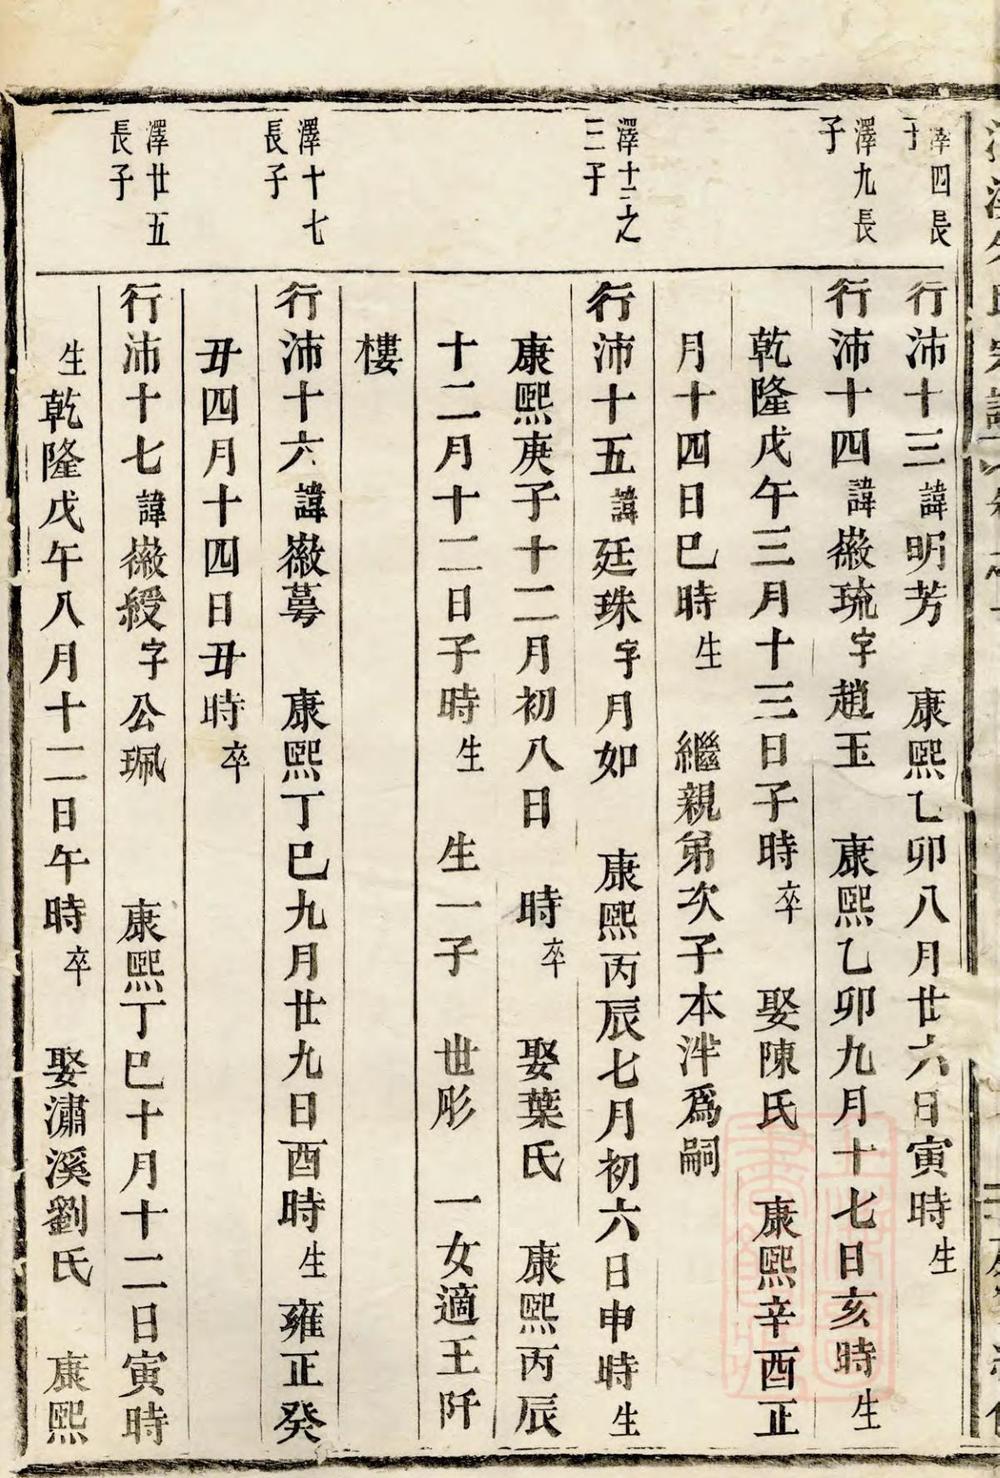 澤四長
子
行沛十三諱明芳 康熙乙卯八月廿六日寅時生
澤九長
子
行沛十四諱徽琉字趙玉 康熙乙卯九月十七日亥時生
乾隆戊午三月十三日子時卒 娶陳氏 康熙辛酉正
月十四日巳時生 繼親弟次子本泮爲嗣
澤十三之
三子
行沛十五諱廷珠字月如 康熙丙辰七月初六日申時生
康熙庚子十二月初八日 時卒 娶葉氏 康熙丙辰
十二月十二日子時生 生一子 世彤 一女適王阡
樓
澤十七
長子
行沛十六諱徽蕚 康熙丁巳九月廿九日酉時生 雍正癸
丑四月十四日丑時卒
澤廿五
長子
行沛十七諱徽綬字公珮 康熙丁巳十月十二日寅時
生 乾隆戊午八月十二日午時卒 娶潚溪劉氏 康熙